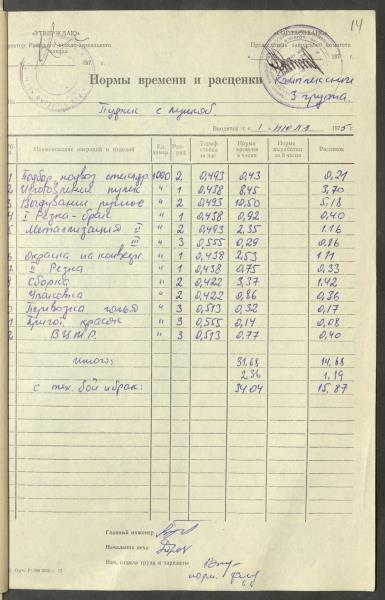 14
«УТВЕРЖДАЮ» «СОГЛАСОВАНО»
197 г. 197 г.
Нормы времени и расценки комплексной
3 группа.
На Пудик с пумкой
Вводится с « 1 » июля 1975 г.
Наименование операций и изделий Ед. измер. Раз-ряд Тариф. ставка за час Норма времени в часах Норма выработки за 8 часов Расценки
1 Подбор, подвоз стеклодр. 1000 2 0,493 0,43 0,21
2 Изготовление пульки " 1 0,438 8.45 3,70
3 Выдувание ручное " 2 0,493 10,50 5,18
4 I Резка-брак " 1 0,438 0,92 0,40
5 Металлизация II " 2 0,493 2.35 1.16
III " 3 0,555 0,29 0,16
6 Окраска на конвейере " 1 0,438 2.53 1.11
7 II Резка " 1 0,438 0.75 0,33
Сборка " 2 0,422 3,37 1,42
Упаковка " 2 0,422 0,86 0,36
Перевозка голья " 3 0,513 0,32 0,17
Пригот. красок " 3 0,555 0,14 0,08
В.Ц.Т.Р. " 3 0,513 0.77 0,40
итого: 31.68 14,68
2.36 1,19
с тех. бой и брак: 34.04 15,87
Главный инженер
Начальник цеха
Нач. отдела труда и зарплаты
норм: